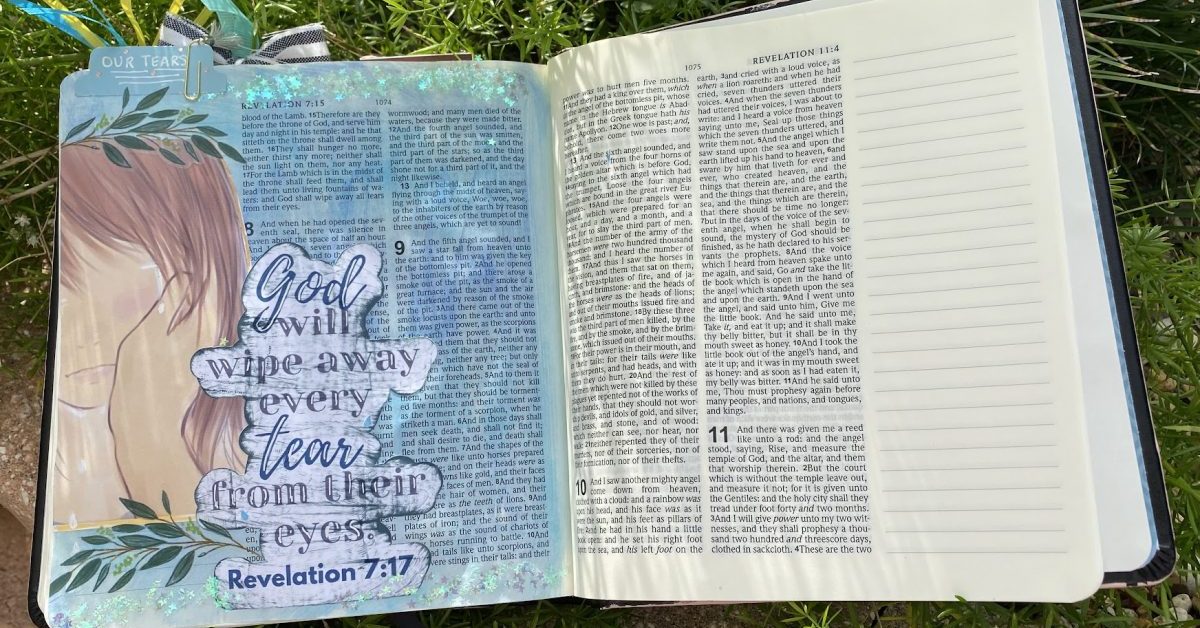 OUR TEARS
REVELATION 7:15
1074
blood of the Lamb. 15Therefore are they
before the throne of God, and serve him
day and night in his temple: and he that
sitteth on the throne shall dwell among
them. 16They shall hunger no more,
neither thirst any more; neither shall
the sun light on them, nor any heat.
17For the Lamb which is in the midst of
the throne shall feed them, and shall
lead them unto living fountains of wa-
ters: and God shall wipe away all tears
from their eyes.
8 And when he had opened the sev-
enth seal, there was silence in
heaven about the space of half an hour.
wormwood; and many men died of the
waters, because they were made bitter.
12And the fourth angel sounded, and
the third part of the sun was smitten,
and the third part of the moon, and the
third part of the stars; so as the third
part of them was darkened, and the day
shone not for a third part of it, and the
night likewise.
13 And I beheld, and heard an angel
flying through the midst of heaven, say-
ing with a loud voice, Woe, woe, woe,
to the inhabiters of the earth by reason
of the other voices of the trumpet of the
three angels, which are yet to sound!
9 And the fifth angel sounded, and I
saw a star fall from heaven unto
the earth: and to him was given the key
of the bottomless pit. 2And he opened
the bottomless pit; and there arose a
smoke out of the pit, as the smoke of a
great furnace; and the sun and the air
were darkened by reason of the smoke
of the pit. 3And there came out of the
smoke locusts upon the earth: and unto
them was given power, as the scorpions
of the earth have power. 4And it was
them that they should not
grass of the earth, neither
neither any tree; but only
which have not the seal of
their foreheads. 5And to them it
that they should not kill
them, but that they should be torment-
ed five months: and their torment was
as the torment of a scorpion, when he
striketh a man. 6And in those days shall
men seek death, and shall not find it;
and shall desire to die, and death shall
flee from them. 7And the shapes of the
were like unto horses prepared
and on their heads were as
crowns like gold, and their faces
faces of men. 8And they had
the hair of women, and their
were as the teeth of lions. 9And
they had breastplates, as it were breast-
plates of iron; and the sound of their
wings was as the sound of chariots of
horses running to battle. 10And
tails like unto scorpions, and
were stings in their tails: and their
God
will
wipe away
every
tear
from their
eyes.
Revelation 7:17
1075
REVELATION 11:4
power was to hurt men five months.
11And they had a king over them, which
is the angel of the bottomless pit, whose
name in the Hebrew tongue is Abad-
don, but in the Greek tongue hath his
name Apollyon. 12One woe is past; and,
behold, there come two woes more
hereafter.
13 And the sixth angel sounded, and
I heard a voice from the four horns of
the golden altar which is before God,
14Saying to the sixth angel which had
the trumpet, Loose the four angels
which are bound in the great river Eu-
phrates. 15And the four angels were
loosed, which were prepared for an
hour, and a day, and a month, and a
year, for to slay the third part of men.
16And the number of the army of the
horsemen were two hundred thousand
thousand: and I heard the number of
them. 17And thus I saw the horses in
the vision, and them that sat on them,
having breastplates of fire, and of ja-
cinth, and brimstone: and the heads of
the horses were as the heads of lions;
and out of their mouths issued fire and
smoke and brimstone. 18By these three
was the third part of men killed, by the
fire, and by the smoke, and by the brim-
stone, which issued out of their mouths.
19For their power is in their mouth, and
in their tails: for their tails were like
unto serpents, and had heads, and with
them they do hurt. 20And the rest of
the men which were not killed by these
plagues yet repented not of the works of
their hands, that they should not wor-
ship devils, and idols of gold, and silver,
and brass, and stone, and of wood:
which neither can see, nor hear, nor
walk: 21Neither repented they of their
murders, nor of their sorceries, nor of
their fornication, nor of their thefts.
10 And I saw another mighty angel
come down from heaven,
clothed with a cloud: and a rainbow was
upon his head, and his face was as it
were the sun, and his feet as pillars of
fire: 2And he had in his hand a little
book open: and he set his right foot
upon the sea, and his left foot on the
earth, 3and cried with a loud voice, as
when a lion roareth: and when he had
cried, seven thunders uttered their
voices. 4And when the seven thunders
had uttered their voices, I was about to
write: and I heard a voice from heaven
saying unto me, Seal up those things
which the seven thunders uttered, and
write them not. 5And the angel which I
saw stand upon the sea and upon the
earth lifted up his hand to heaven, 6and
sware by him that liveth for ever and
ever, who created heaven, and the
things that therein are, and the earth,
and the things that therein are, and the
sea, and the things which are therein,
that there should be time no longer:
7but in the days of the voice of the sev-
enth angel, when he shall begin to
sound, the mystery of God should be
finished, as he hath declared to his ser-
vants the prophets. 8And the voice
which I heard from heaven spake unto
me again, and said, Go and take the lit-
tle book which is open in the hand of
the angel which standeth upon the sea
and upon the earth. 9And I went unto
the angel, and said unto him, Give me
the little book. And he said unto me,
Take it, and eat it up; and it shall make
thy belly bitter, but it shall be in thy
mouth sweet as honey. 10And I took the
little book out of the angel's hand, and
ate it up; and it was in my mouth sweet
as honey: and as soon as I had eaten it,
my belly was bitter. 11And he said unto
me, Thou must prophesy again before
many peoples, and nations, and tongues,
and kings.
11 And there was given me a reed
like unto a rod: and the angel
stood, saying, Rise, and measure the
temple of God, and the altar, and them
that worship therein. 2But the court
which is without the temple leave out,
and measure it not; for it is given unto
the Gentiles: and the holy city shall they
tread under foot forty and two months.
3And I will give power unto my two wit-
nesses, and they shall prophesy a thou-
sand two hundred and threescore days,
clothed in sackcloth. 4These are the two